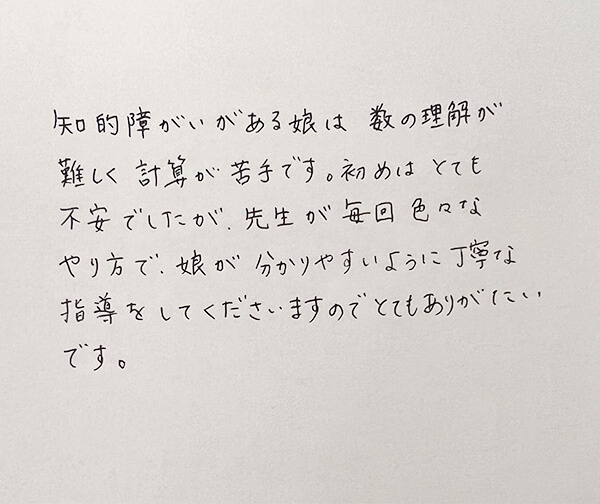 知的障がいがある娘は 数の理解が
難しく 計算が苦手です。初めは とても
不安でしたが、先生が毎回 色々な
やり方で、娘が 分かりやすいように丁寧な
指導をしてくださいますのでとてもありがたい
です。